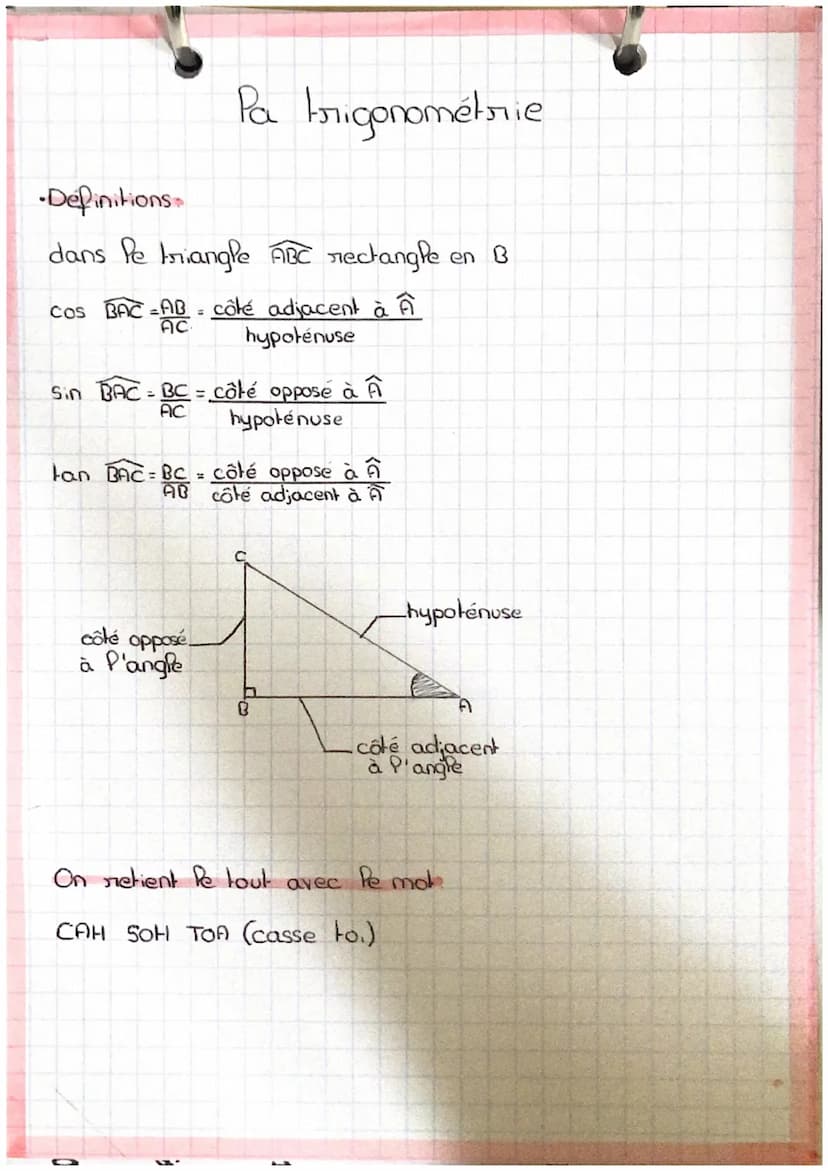 La trigonométrie
•Définitions•
dans le triangle \widehat{ABC} rectangle en B
cos \widehat{BAC} = AB/AC = côté adjacent à Â / hypoténuse
sin \widehat{BAC} = BC/AC = côté opposé à Â / hypoténuse
tan \widehat{BAC} = BC/AB = côté opposé à Â / côté adjacent à Â
C
hypoténuse
côté opposé
à l'angle
B
A
côté adjacent
à l'angle
On retient le tout avec le mot
CAH SOH TOA (casse toi)